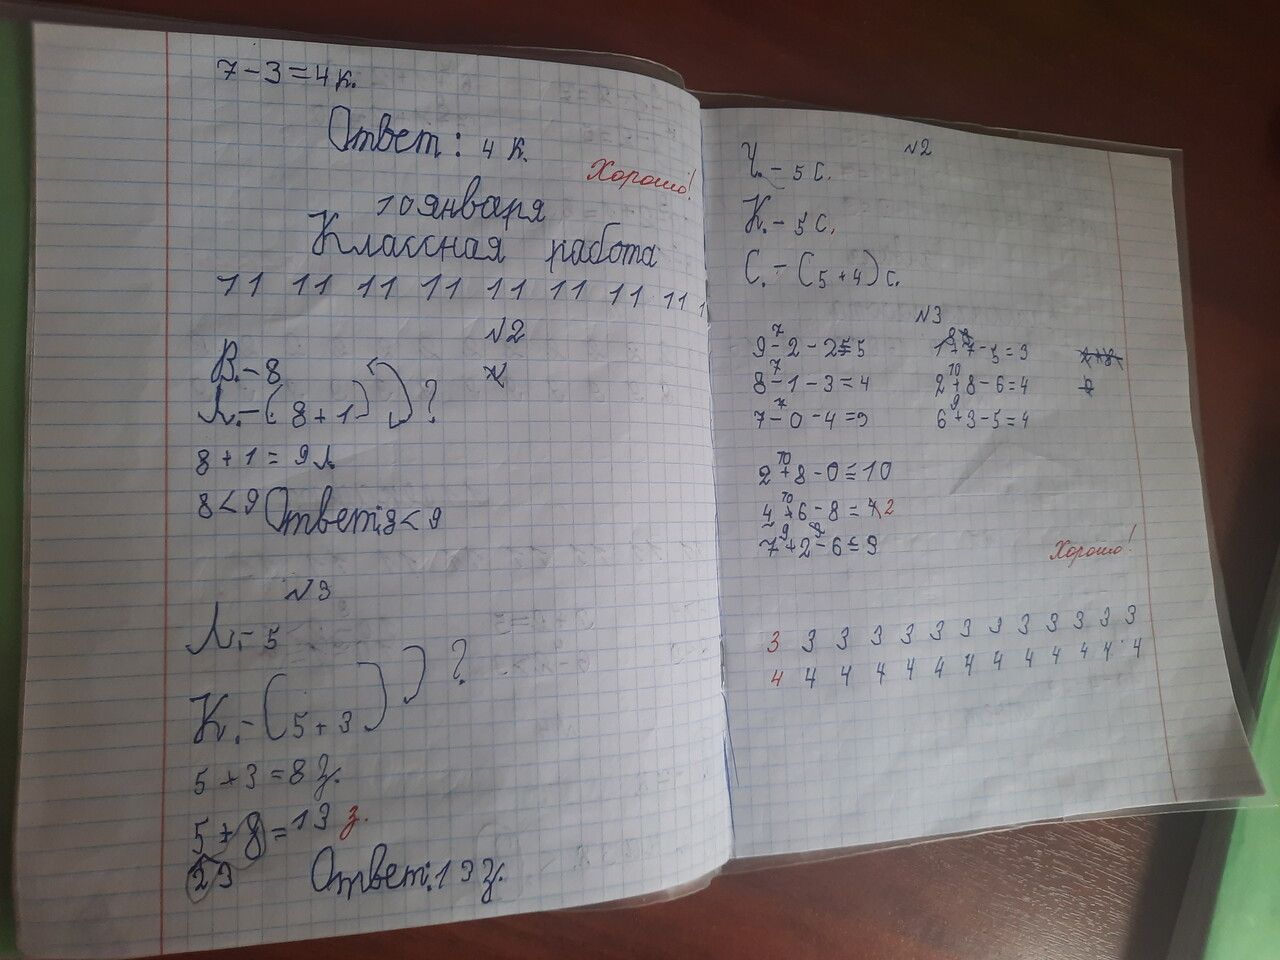 7-3=4к.
Ответ: 4 к.
Хорошо!
10 января
Классная работа
11 11 11 11 11 11 11 11 1
№2
В.-8
Л.-(8+1) ?
8+1=9л.
8<9 Ответ: 8<9
№3
Л.-5
К.-(5+3) ?
5+3=8 з.
5+8=13 з.
23
Ответ: 13 з.
№2
Ч.-5 с.
К.-5 с.
С.-(5+4) с.
№3
7
9-2-2=5
7
8-1-3=4
7
7-0-4=9
8
1+7-5=3
10
2+8-6=4
9
6+3-5=4
10
2+8-0=10
10
4+6-8=4 2
9
7+2-6=9
Хорошо!
3 3 3 3 3 3 3 3 3 3 3 3 3
4 4 4 4 4 4 4 4 4 4 4 4 4